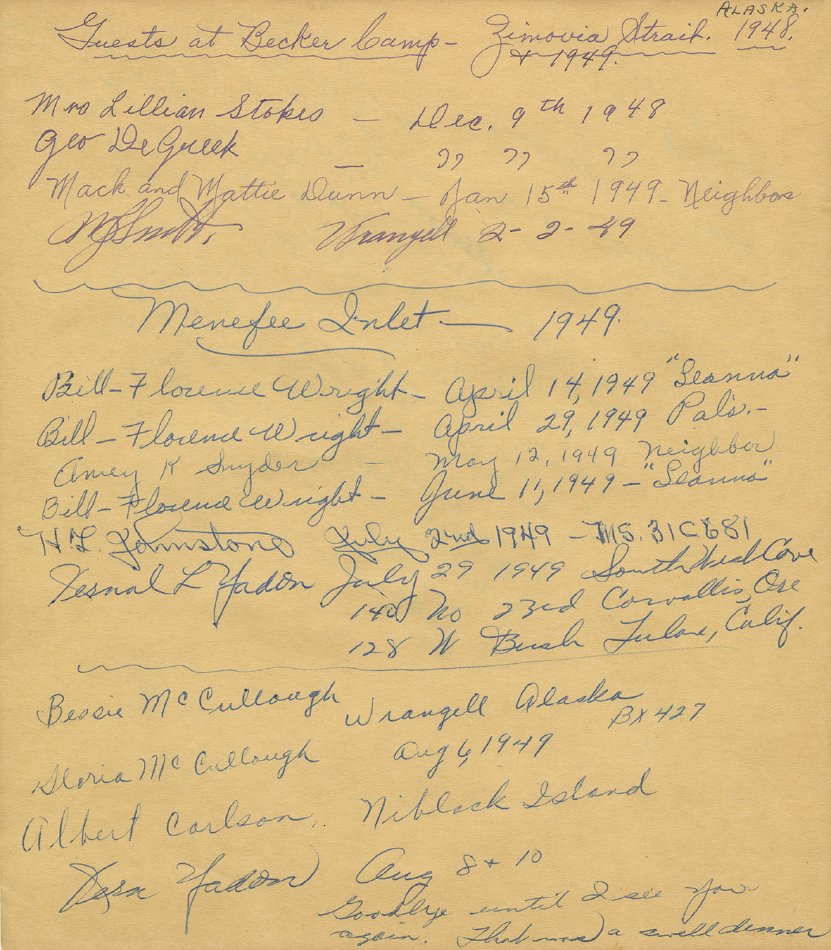 ALASKA.
Guests at Becker Camp - Zimovia Strait. 1948.
+ 1949.
Mrs Lillian Stokes - Dec. 9th 1948
Geo DeGreek - " " "
Mack and Mattie Dunn - Jan 15th 1949 - Neighbors
Smith. Wrangell 2-2-49
Menefee Inlet - 1949.
Bill - Florence Wright - April 14, 1949 "Leanna"
Bill - Florence Wright - April 29, 1949 Pals. -
Amey K Snyder - May 12, 1949 Neighbor
Bill - Florence Wright - June 11, 1949 - "Leanna"
H.L. Johnstone July 2nd 1949 - MS. 31C681
L Yadon July 29 1949 South West Cove
140 No 23rd Corvallis, Ore
128 W Bush Tulare, Calif.
Bessie McCullough Wrangell Alaska
BX 427
Gloria McCullough Aug 6, 1949
Albert Carlson, Niblack Island
Yadon Aug 8 + 10
Goodbye until I see you
again. That was a swell dinner